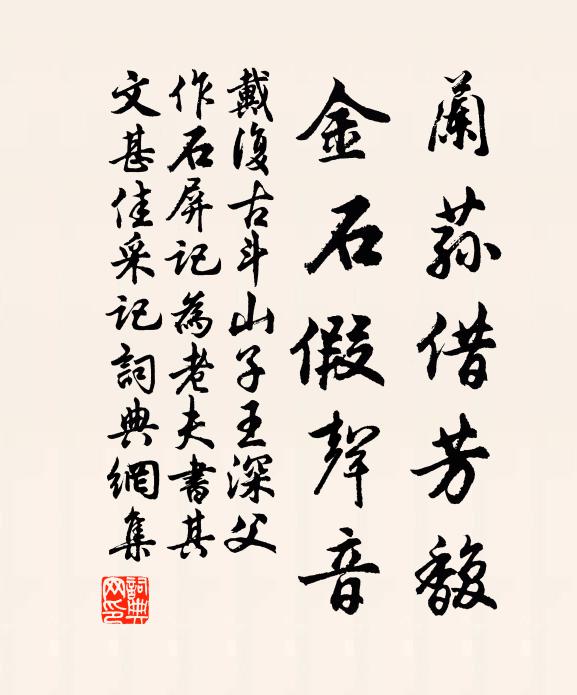 蘭蓀借芳馥
金石假聲音
戴復古斗山子王深父
作石屏記為老夫書其
文甚佳采記詞典網集
詞典網印